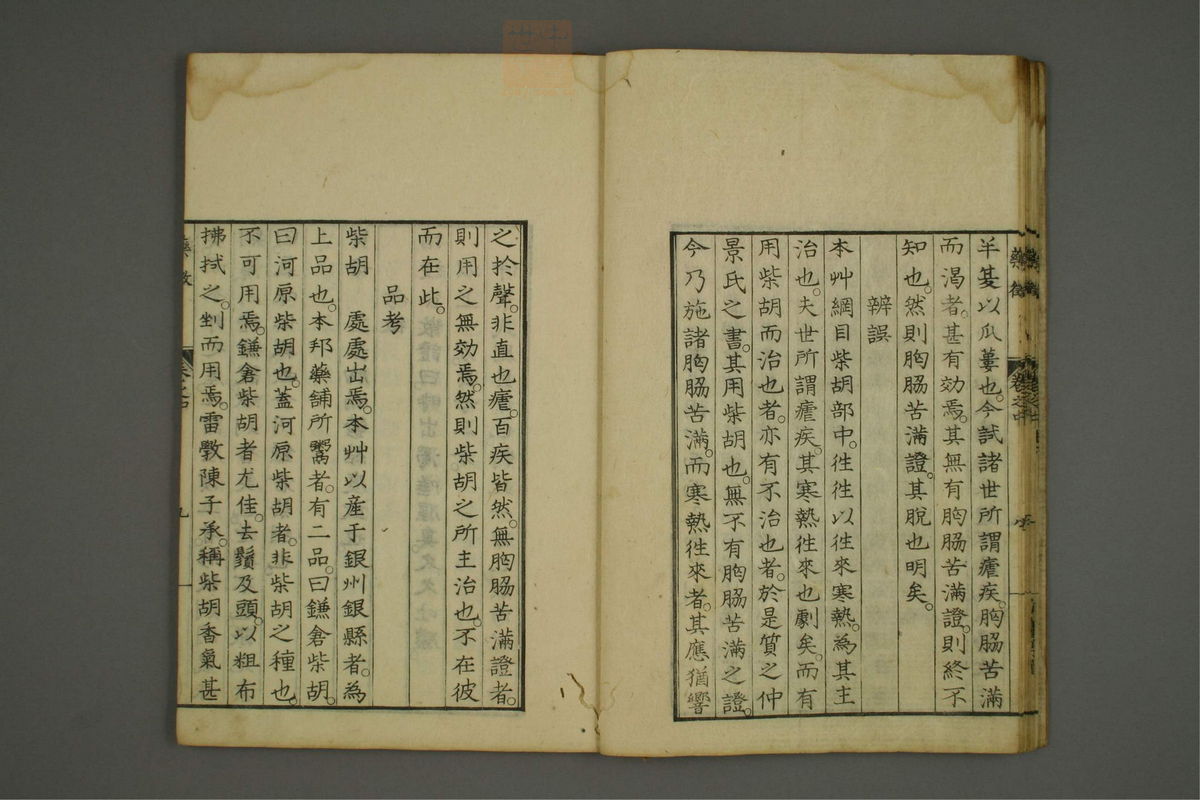 羊芰以瓜蔞也。今試諸世所謂瘧疾。胸脇苦滿
而渴者。甚有効焉。其無有胸脇苦滿證。則終不
知也。然則胸脇苦滿證。其脫也明矣。
辨誤
本艸綱目柴胡部中。徃徃以徃來寒熱。為其主
治也。夫世所謂瘧疾。其寒熱徃來也劇矣。而有
用柴胡而治也者。亦有不治也者。於是質之仲
景氏之書。其用柴胡也。無不有胸脇苦滿之證。
今乃施諸胸脇苦滿。而寒熱徃來者。其應猶響
之於聲。非直也瘧。百疾皆然。無胸脇苦滿證者。
則用之無効焉。然則柴胡之所主治也。不在彼
而在此。
品考
柴胡　處處出焉。本艸以産于銀州銀縣者。為
上品也。本邦藥舖所鬻者。有二品。曰鎌倉柴胡。
曰河原柴胡也。蓋河原柴胡者。非柴胡之種也。
不可用焉。鎌倉柴胡者尤佳。去鬚及頭。以粗布
拂拭之。剉而用焉。雷斆陳子承。稱柴胡香氣甚
藥徵
九